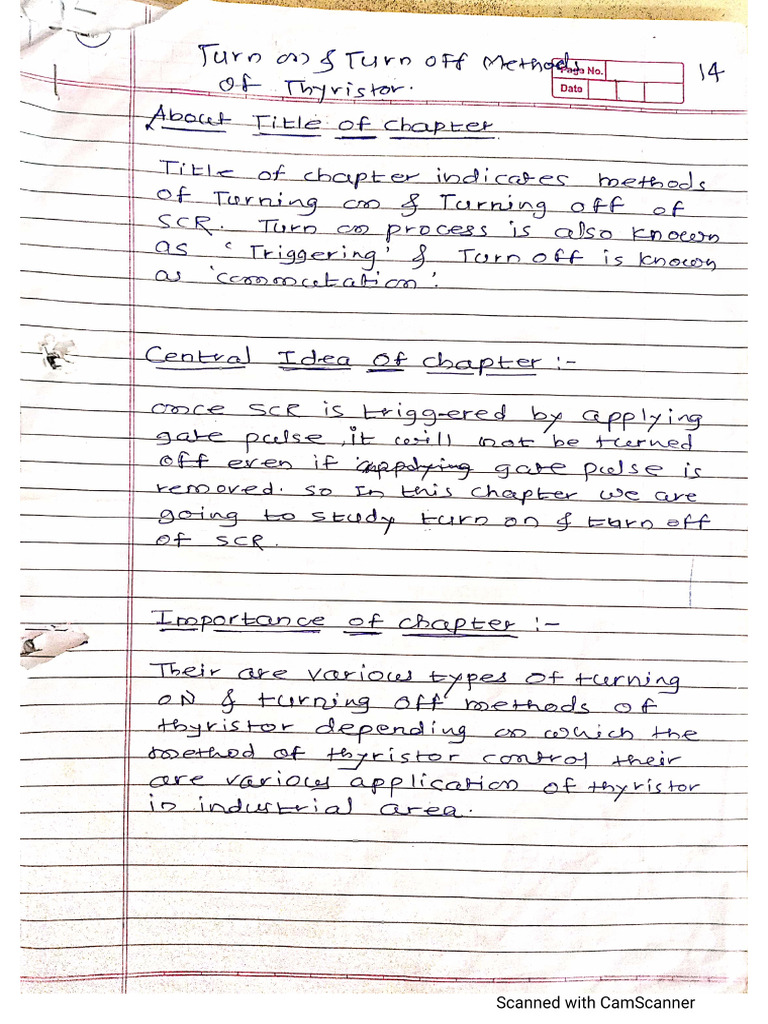 Turn on & Turn off Methods
Page No.
14
of Thyristor.
Date
About Title of Chapter
Title of chapter indicates methods
of Turning on & Turning off of
SCR. Turn on process is also known
as 'Triggering' & Turn off is known
as 'commutation'.
Central Idea of chapter :-
once SCR is triggered by applying
gate pulse, it will not be turned
off even if applying gate pulse is
removed. so In this chapter we are
going to study turn on & turn off
of SCR.
Importance of chapter :-
Their are various types of turning
ON & turning off methods of
thyristor depending on which the
method of thyristor control their
are various application of thyristor
in industrial area.
Scanned with CamScanner